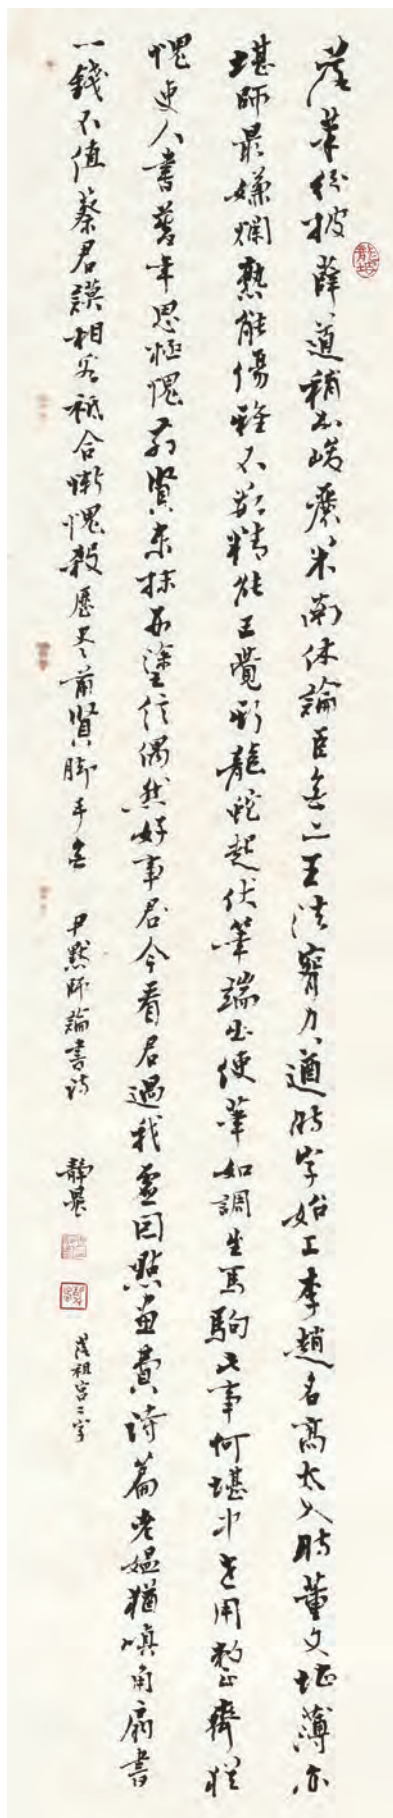 落筆紛披薛道稍加峻麗米南休論臣無二王法腕力遒時字始工李趙名高太入時董文堪薄亦
堪師最嫌爛熟能傷雅不羨精能王覺斯龍蛇起伏筆端出使筆如調生馬駒此事何堪中世用整齊猶
愧吏人書暮年思極愧前賢東抹西塗信偶然好事君今看君過我虛因點畫費詩篇老嫗猶嗔角扇書
一錢不值蔡君謨相君祗合慚愧殺歷盡前賢腳手無
尹默師論書詩
靜晨
落祖宮二字